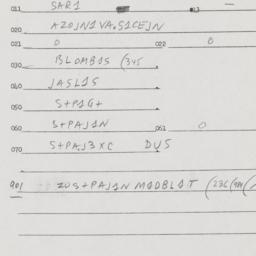 011 SAR1 013 —
020 AZOJN1VA.S1CEJN
021 0 022 B
030 BLOMBOS (345
040 JASLOS
050 S+P1G+
060 S+PAJ1N 061 0
070 S+PAJ3XC DUS
901 ZUS+PAJ1N MADBLAT (236